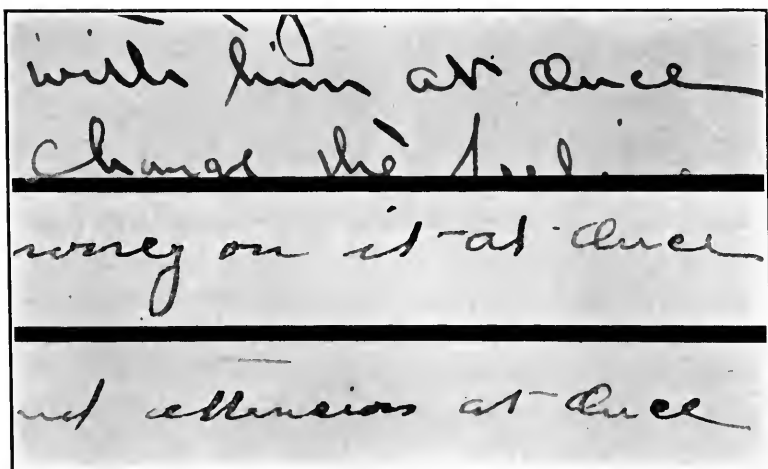 with him at once
Change the feeling
money on it at once
and attension at once